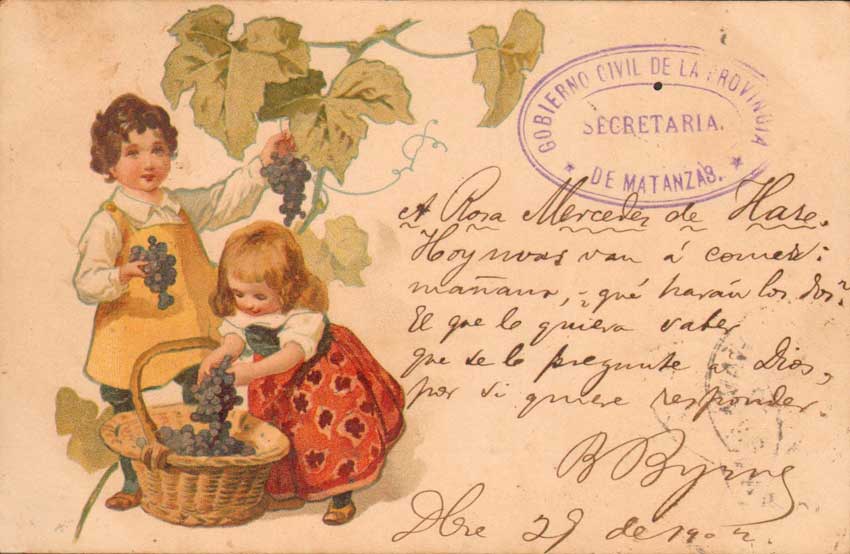 GOBIERNO CIVIL DE LA PROVINCIA
SECRETARIA.
DE MATANZAS.
A Rosa Mercedes de Haze.
Hoy uvas van á comer:
mañana, ¿qué harán los dos?
El que lo quiera saber
que se lo pregunte a Dios,
por si quiere responder
B Byrne
Dbre 29 de 1902